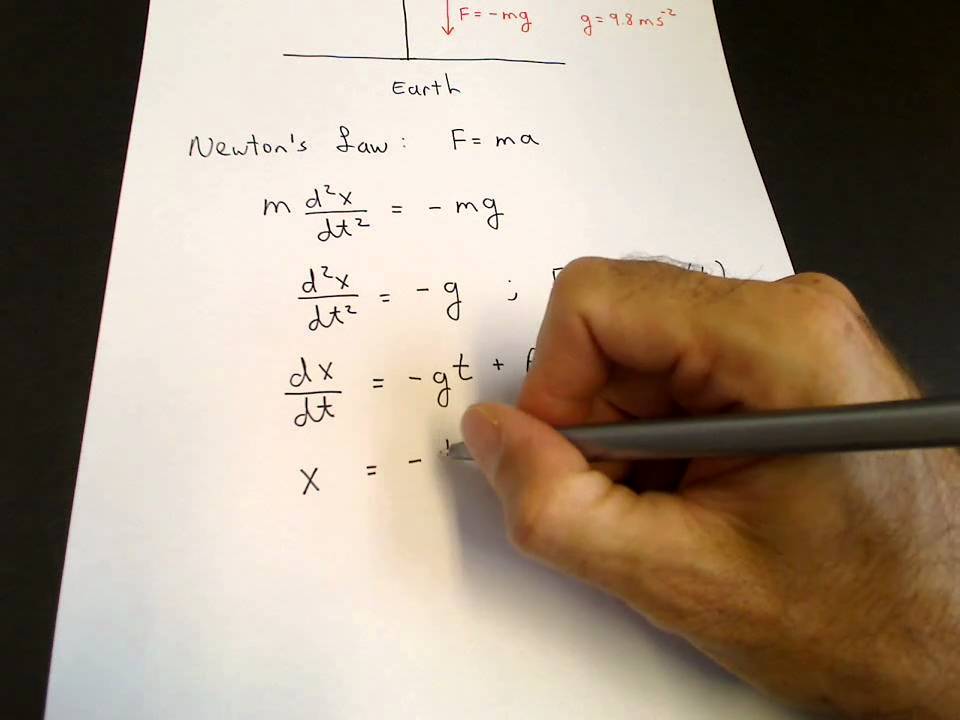 F = -mg g = 9.8 ms⁻²
Earth
Newton's Law: F = ma
m d²x/dt² = - mg
d²x/dt² = - g ;
dx/dt = - gt +
x = -